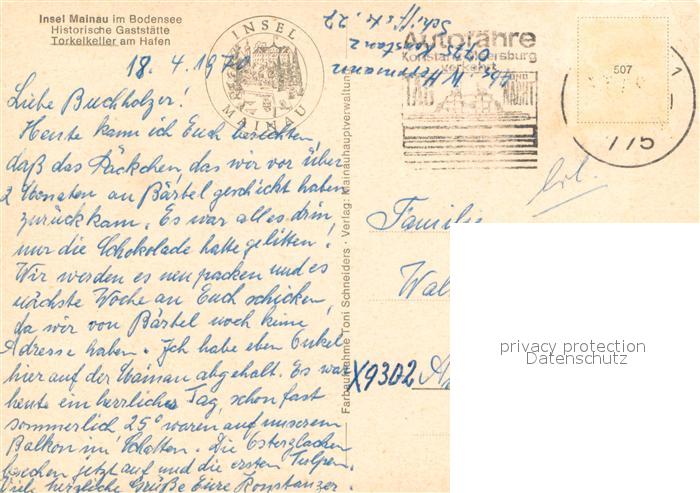 Insel Mainau im Bodensee
Historische Gaststätte
Torkelkeller am Hafen
18. 4. 1970
Liebe Buchholzer!
Heute kann ich Euch berichten
daß das Päckchen, das wir vor über
2 Monaten an Bärbel geschickt haben
zurückkam. Es war alles drin,
nur die Schokolade hatte gelitten!
Wir werden es neu packen und es
nächste Woche an Euch schicken,
da wir von Bärbel noch keine
Adresse haben. Ich habe eben Onkel
hier auf der Mainau abgeholt. Es war
heute ein herrlicher Tag, schon fast
sommerlich 25° waren auf unserem
Balkon im Schatten. Die Osterglocken
blühen jetzt auf und die ersten Tulpen.
Viele herzliche Grüße Eure Konstanzer.
INSEL
MAINAU
Farbaufnahme Toni Schneiders · Verlag: Mainauhauptverwaltung
Abs. W. Herrmann
Konstanz
Schiffstr. 27
Autofähre
Konstanz-Meersburg
verkehrt
TAG UND NACHT
507
775
Familie
Wal
X9302
privacy protection
Datenschutz